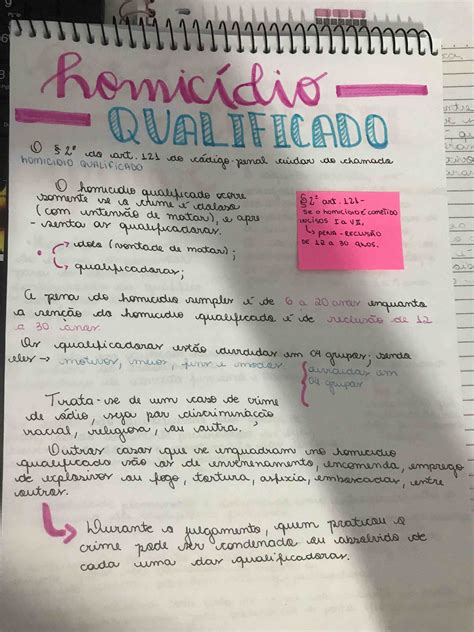 homicídio
QUALIFICADO
O § 2º do art. 121 do código penal cuidar do chamado
HOMICIDIO QUALIFICADO
O homicídio qualificado ocorre
somente se o crime é doloso
(com intensão de matar), e apre
senta as qualificadoras.
dolo (vontade de matar);
qualificadoras;
§ 2º art. 121-
SE O HOMICÍDIO É COMETIDO
INCISOS I a VI,
PENA - RECLUSÃO
DE 12 a 30 anos.
A pena do homicidio simples é de 6 a 20 anos enquanto
a sanção do homicidio qualificado é de reclusão de 12
a 30 anos.
As qualificadoras estão divididas em 04 grupos; sendo
eles → motivos, meios, fins e modos.
divididas em
04 grupos
Trata-se de um caso de crime
de ódio, seja por discriminação
racial, religiosa, ou outra.
Outros casos que se enquadram no homicidio
qualificado são os de envenenamento, encomenda, emprego
de explosivos ou fogo, tortura, asfixia, emboscadas, entre
outros.
Durante o julgamento, quem praticou o
crime pode ser condenado ou absolvido de
cada uma das qualificadoras.